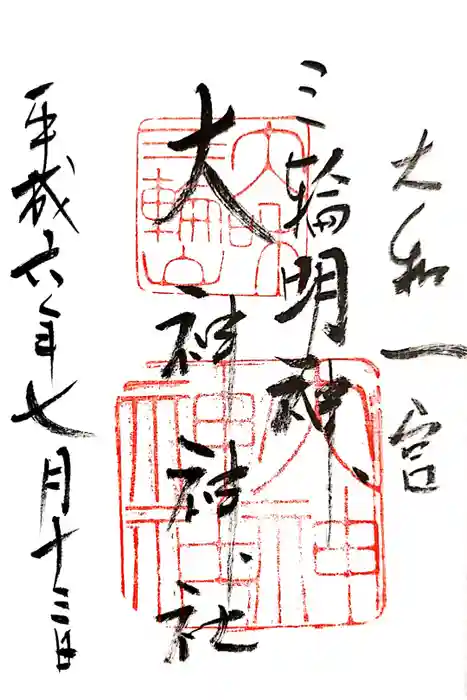 大和一宮
三輪明神
大神神社
平成六年七月十三日